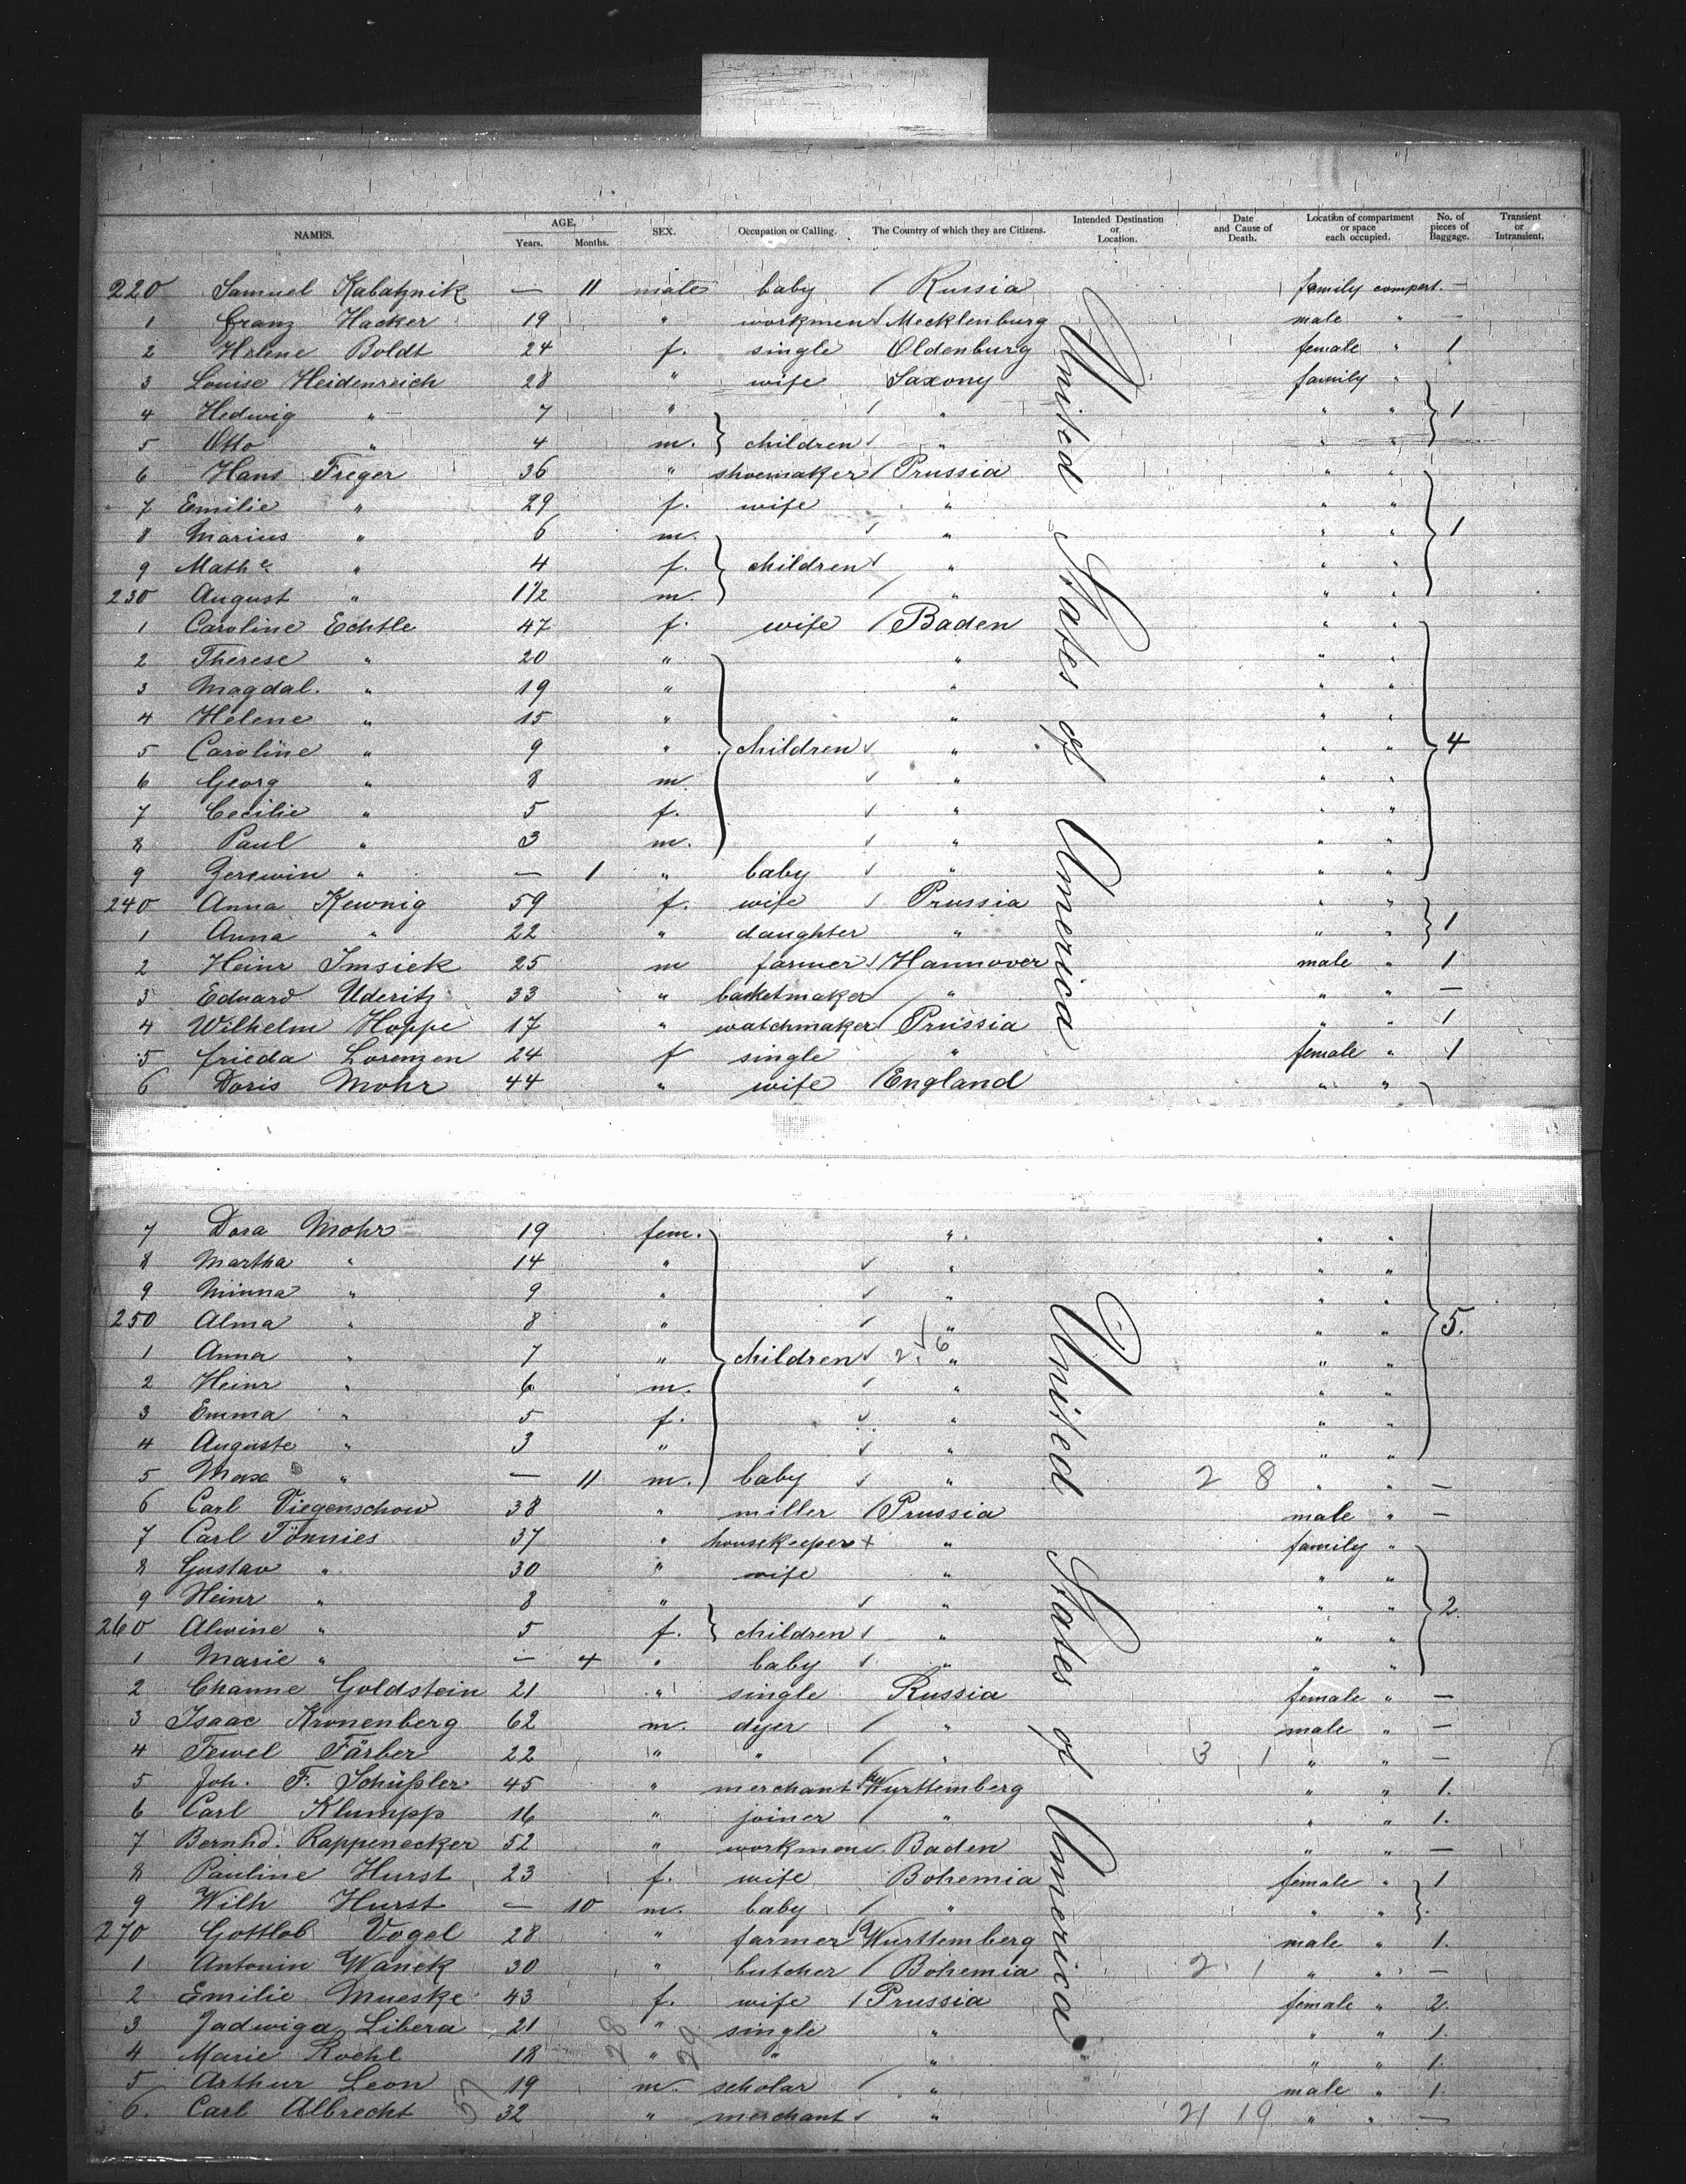 NAMES. AGE. Years. Months. SEX. Occupation or Calling. The Country of which they are Citizens. Intended Destination or Location. Date and Cause of Death. Location of compartment or space each occupied. No. of pieces of Baggage. Transient or Intransient.
220 Samuel Kabatznik — 11 male baby / Russia family compart. —
1 Franz Hacker 19 " workmen / Mecklenburg male " —
2 Helene Boldt 24 f. single Oldenburg female " 1
3 Louise Heidenreich 28 " wife Saxony family "
4 Hedwig " 7 " / " " " 1
5 Otto " 4 m. children / " " "
6 Hans Freger 36 " shoemaker / Prussia " "
7 Emilie " 29 f. wife " " "
8 Marius " 6 m. / " " " 1
9 Mathe " 4 f. children / " " "
230 August " 1 1/2 m. / " " "
1 Caroline Echtle 47 f. wife / Baden " "
2 Therese " 20 " " " "
3 Magdal. " 19 " " " "
4 Helene " 15 " " " "
5 Caroline " 9 " children ✓ " " " 4
6 Georg " 8 m. ✓ " " "
7 Cecilie " 5 f. ✓ " " "
8 Paul " 3 m. ✓ " " "
9 " — 1 " baby ✓ " " "
240 Anna Kewnig 59 f. wife / Prussia " "
1 Anna " 22 " daughter " " " 1
2 Heinr Imsiek 25 m farmer / Hannover male " 1
3 Eduard Uderitz 33 " basketmaker / " " " —
4 Wilhelm Hoppe 17 " watchmaker / Prussia " " 1
5 Frieda Lorenzen 24 f single " female " 1
6 Doris Mohr 44 " wife / England " "
United States of America
7 Dora Mohr 19 fem. " " "
8 Martha " 14 " ✓ " " "
9 Minna " 9 " ✓ " " "
250 Alma " 8 " / " " " 5.
1 Anna " 7 " children ✓ " " "
2 Heinr " 6 m. / " " "
3 Emma " 5 f. ✓ " " "
4 Auguste " 3 " ✓ " " "
5 Max " — 11 m. baby ✓ " 2 8 " " —
6 Carl Viegenschow 38 " miller / Prussia male " —
7 Carl Tönnies 37 " housekeeper + " family "
8 Gustav " 30 " wife " " "
9 Heinr " 8 " ✓ " " " 2.
260 Alwine " 5 f. children / " " "
1 Marie " — 4 " baby / " " "
2 Channe Goldstein 21 " single Russia female " —
3 Isaac Kronenberg 62 m. dyer / " male " —
4 Tewel Färber 22 " " / " 3 1 " " —
5 Joh. F. Schüßler 45 " merchant Wurttemberg " " 1.
6 Carl Klumpp 16 " joiner / " " " 1.
7 Bernhd. Rappenecker 52 " workmen Baden " " —
8 Pauline Hurst 23 f. wife Bohemia female " 1
9 Wilh Hurst — 10 m. baby / " " "
270 Gottlob Vogel 28 " farmer Wurttemberg male " 1.
1 Antonin Wanek 30 " butcher / Bohemia 2 1 " " —
2 Emilie Mueske 43 f. wife / Prussia female " 2.
3 Jadwiga Libera 21 " single " " " 1.
4 Marie Roehl 18 " " " " " 1.
5 Arthur Leon 19 m. scholar / " male " 1.
6. Carl Albrecht 32 " merchant ✓ " 21 19 " " —
United States of America